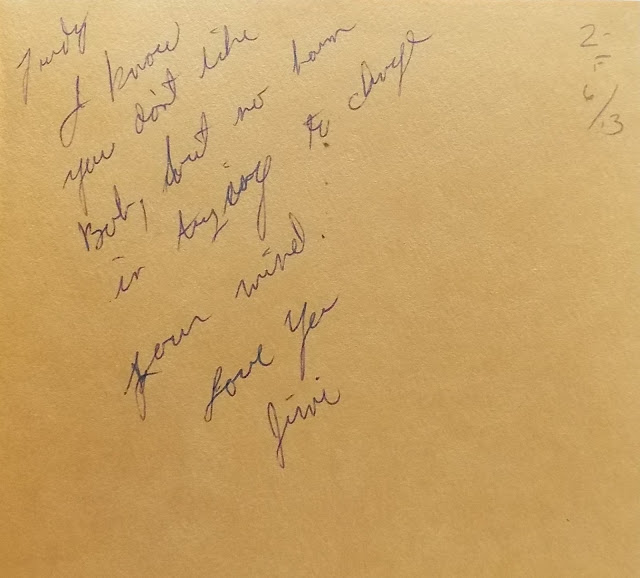 Judy
I know
you don't like
Bob, but no harm
in trying to change
your mind.
Love You
Jimi
2-
F
6/13